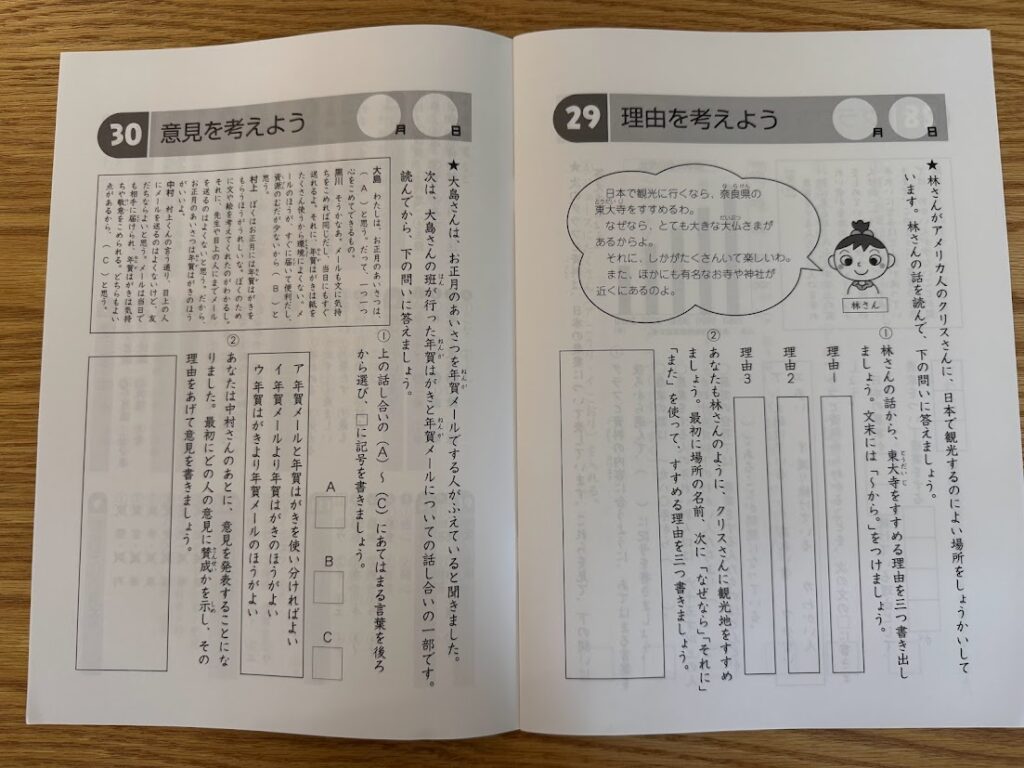 29
理由を考えよう
月
日
★林さんがアメリカ人のクリスさんに、日本で観光するのによい場所をしょうかいして
います。林さんの話を読んで、下の問いに答えましょう。
日本で観光に行くなら、奈良県の
東大寺をすすめるわ。
なぜなら、とても大きな大仏さまが
あるからよ。
それに、しかがたくさんいて楽しいわ。
また、ほかにも有名なお寺や神社が
近くにあるのよ。
林さん
① 林さんの話から、東大寺をすすめる理由を三つ書き出し
ましょう。文末には「〜から。」をつけましょう。
理由1
理由2
理由3
② あなたも林さんのように、クリスさんに観光地をすすめ
ましょう。最初に場所の名前、次に「なぜなら」「それに」
「また」を使って、すすめる理由を三つ書きましょう。
30
意見を考えよう
月
日
★大島さんは、お正月のあいさつを年賀メールでする人がふえていると聞きました。
次は、大島さんの班が行った年賀はがきと年賀メールについての話し合いの一部です。
読んでから、下の問いに答えましょう。
大島 わたしは、お正月のあいさつは、
(A)と思う。だって、一つ一つ
心をこめてできるもの。
黒川 そうかなあ。メールも文に気持
ちをこめれば同じだし、当日にもすぐ
送れるよ。それに、年賀はがきは紙を
たくさん使うから環境によくない。メ
ールのほうが、すぐに届いて便利だし、
資源のむだが少ないから(B)と
思う。
村上 ぼくはお正月には年賀はがきを
もらうほうがうれしいな。ぼくのため
に文や絵を考えてくれたのがわかるし。
それに、先生や目上の人にまでメール
を送るのはよくないと思う。だから、
お正月のあいさつは年賀はがきのほう
がいいよ。
中村 村上くんの言う通り、目上の人
にメールを送るのはよくないけど、友
だちならよいと思う。メールは当日で
も相手に届けられ、年賀はがきは気持
ちや敬意をこめられる。どちらもよい
点があるから、(C)と思う。
① 上の話し合いの(A)〜(C)にあてはまる言葉を後ろ
から選び、□に記号を書きましょう。
A
B
C
ア 年賀メールと年賀はがきを使い分ければよい
イ 年賀メールより年賀はがきのほうがよい
ウ 年賀はがきより年賀メールのほうがよい
② あなたは中村さんのあとに、意見を発表することにな
りました。最初にどの人の意見に賛成かを示し、その
理由をあげて意見を書きましょう。